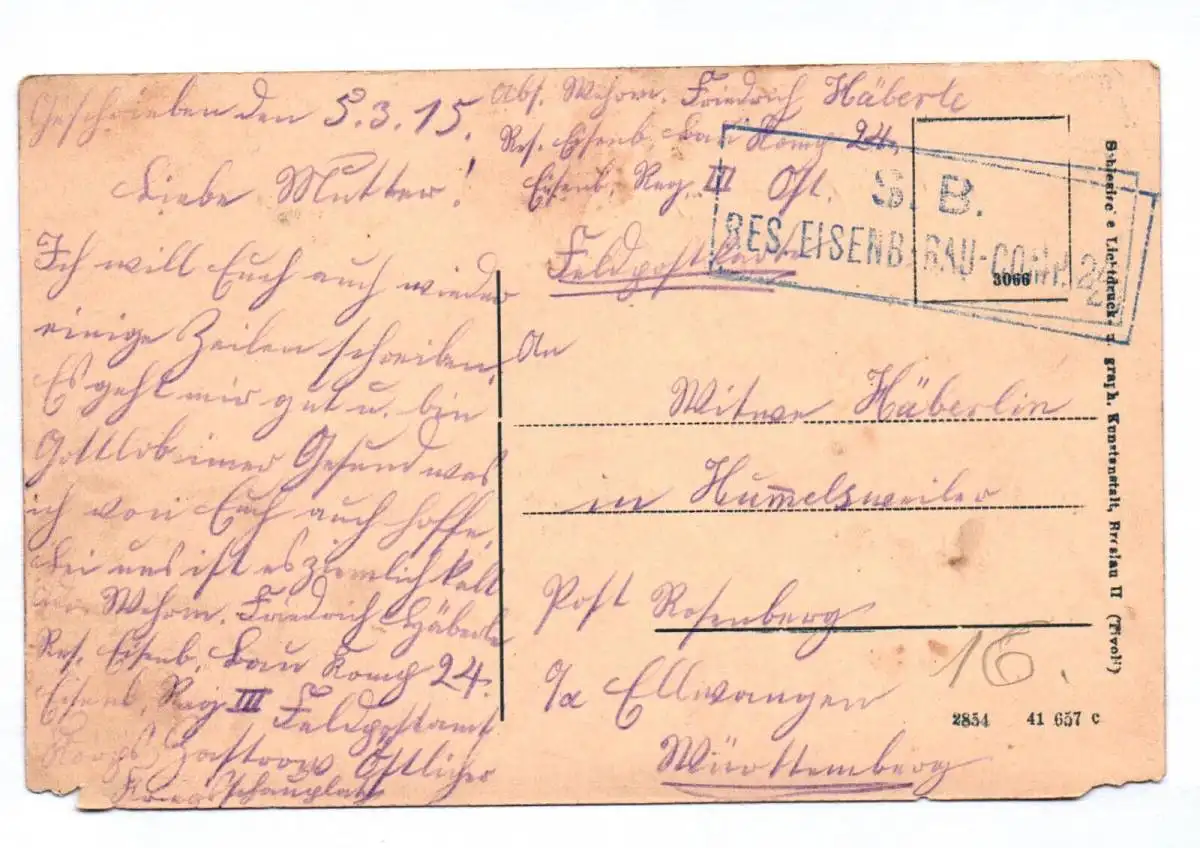 Geschrieben den 5.3.15.
Liebe Mutter!
Ich will Euch auch wieder
einige Zeilen schreiben,
Es geht mir gut u. bin
Gottlob imer Gesund was
ich von Euch auch hoffe,
bei uns ist es ziemlich kalt
Wehrm. Friedrich Häberle
Res. Eisenb. Bau Komp 24.
Eisenb. Reg III Feldpostamt
Korps Zastrow Östlicher
Kriegsschauplatz
Abs. Wehrm. Friedrich Häberle
Res. Eisenb. Bau Komp 24,
Eisenb. Reg. III Ost.
Feldpostkarte
S. B.
RES. EISENB. BAU-COMP. 24
3066
An
Witwe Häberlin
in Hum̅elsweiler
Post Rosenberg
o/a Ellwangen
Württemberg
16.
2854 41 657 c
Schlesische Lichtdruck- u. graph. Kunstanstalt, Breslau II (Tivoli)